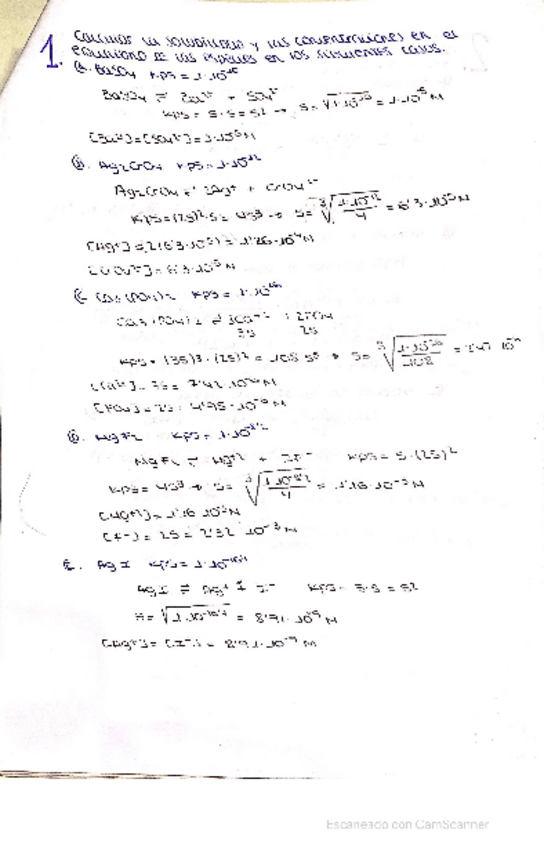 1. Calcular la solubilidad y las concentraciones en el
equilibrio de las especies en los siguientes casos.
A. BaSO4 Kps = 1·10
BaSO4 ⇌ Ba²⁺ + SO4²⁻
Kps = s·s = s² → s = = 1·10⁻⁵ M
[Ba²⁺] = [SO4²⁻] = 1·10⁻⁵ M
B. Ag2CrO4 Kps = 1·10⁻¹²
Ag2CrO4 ⇌ 2Ag⁺ + CrO4²⁻
Kps = (2s)²·s = 4s³ → s = ∛(1·10⁻¹²/4) = 6'3·10⁻⁵ M
[Ag⁺] = 2(6'3·10⁻⁵) = 1'26·10⁻⁴ M
[CrO4²⁻] = 6'3·10⁻⁵ M
C. Ca3(PO4)2 Kps = 1·10
Ca3(PO4)2 ⇌ 3Ca⁺² + 2PO4
3s 2s
Kps = (3s)³·(2s)² = 108 s⁵ → s =
[Ca²⁺] = 3s = 7'42·10 M
[PO4] = 2s = 4'95·10 M
D. MgF2 Kps = 1·10
MgF2 ⇌ Mg⁺² + 2F⁻ Kps = s·(2s)²
Kps = 4s³ → s = = 1'16·10⁻³ M
[Mg⁺²] = 1'16·10⁻³ M
[F⁻] = 2s = 2'32·10⁻³ M
E. AgI Kps = 1·10
AgI ⇌ Ag⁺ + I⁻ Kps = s·s = s²
= 8'91·10⁻⁹ M
[Ag⁺] = [I⁻] = 8'91·10⁻⁹ M
Escaneado con CamScanner